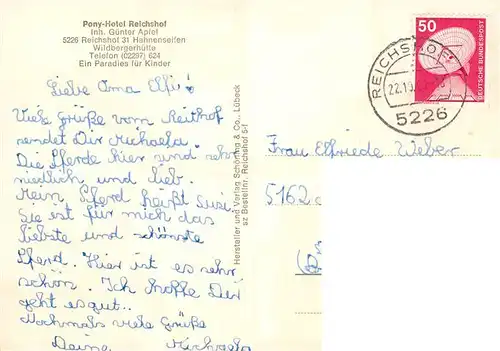 Pony-Hotel Reichshof
Inh. Günter Apfel
5226 Reichshof 31 Hahnenseifen
Wildbergerhütte
Telefon (02297) 624
Ein Paradies für Kinder
Liebe Oma Elfi!
Viele Grüße vom Reithof
sendet Dir Michaela.
Die Pferde hier sind sehr
niedlich und lieb.
Mein Pferd heißt Susi.
Sie ist für mich das
liebste und schönste
Pferd. Hier ist es sehr
schön. Ich hoffe Dir
geht es gut..
Nochmals viele Grüße
Deine Michaela
Hersteller und Verlag Schöning & Co., Lübeck
sz Bestellnr. Reichshof 5/1
50
DEUTSCHE BUNDESPOST
REICHSHOF
22.10.
5226
Frau Elfriede Weber
5162